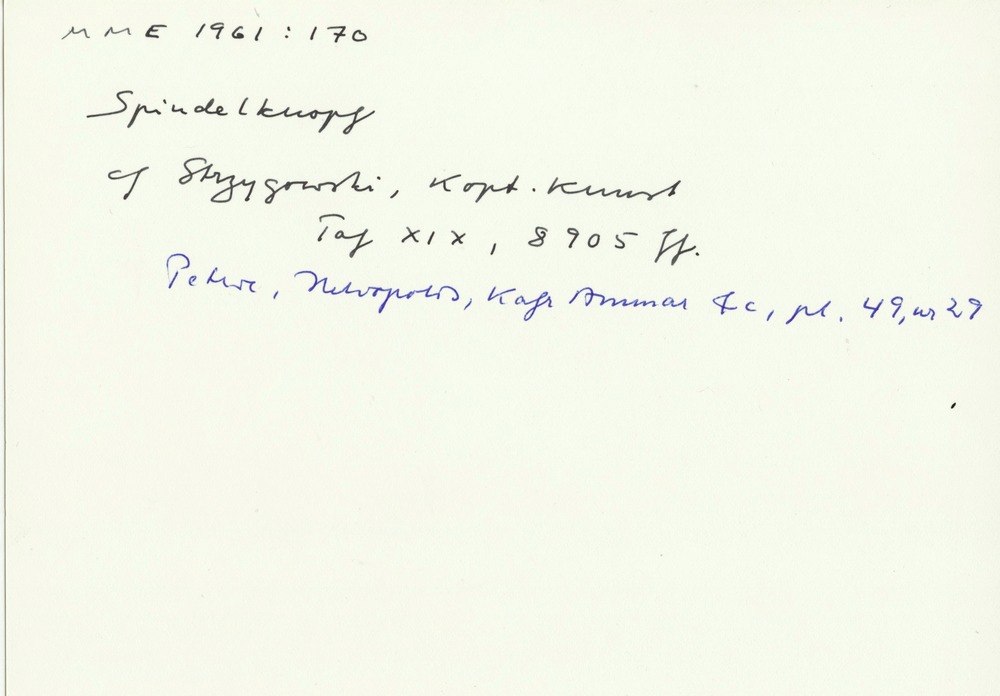 MME 1961:170
Spindelknopf
cf Strzygowski, Kopt. Kunst
Taf XIX, 8905 ff.
Petrie, Heliopolis, Kafr Ammar &c, pl. 49, nr 29